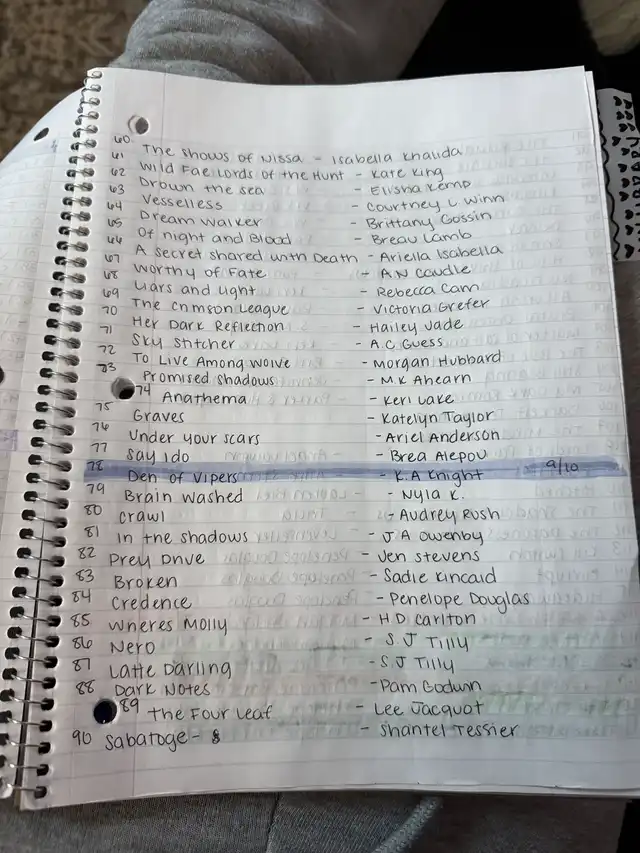 60 The Shows of Nissa - Isabella Khalida
61 Wild Fae Lords of the Hunt - Kate King
62 Drown the sea - Elisha Kemp
63 Vesselless - Courtney L Winn
64 Dream Walker - Brittany Gossin
65 Of night and Blood - Breau Lamb
66 A Secret shared with Death - Ariella Isabella
67 Worthy of Fate - A.N Caudle
68 Liars and Light - Rebecca Cann
69 The Crimson League - Victoria Grefer
70 Her Dark Reflection - Hailey Jade
71 Sky Stitcher - A.C. Guess
72 To Live Among Wolve - Morgan Hubbard
73 Promised shadows - M.K Ahearn
74 Anathema - Keri Lake
75 Graves - Katelyn Taylor
76 Under your scars - Ariel Anderson
77 Say I do - Brea Alepou
78 Den of Vipers - K.A Knight 9/10
79 Brain washed - Nyla K.
80 Crawl - Audrey Rush
81 In the shadows - J A Owenby
82 Prey Drive - Jen Stevens
83 Broken - Sadie Kincaid
84 Credence - Penelope Douglas
85 Wheres Molly - H D Carlton
86 Nero - S J Tilly
87 Latte Darling - S J Tilly
88 Dark Notes - Pam Godwin
89 The Four Leaf - Lee Jacquot
90 Sabatoge - 8 - Shantel Tessier